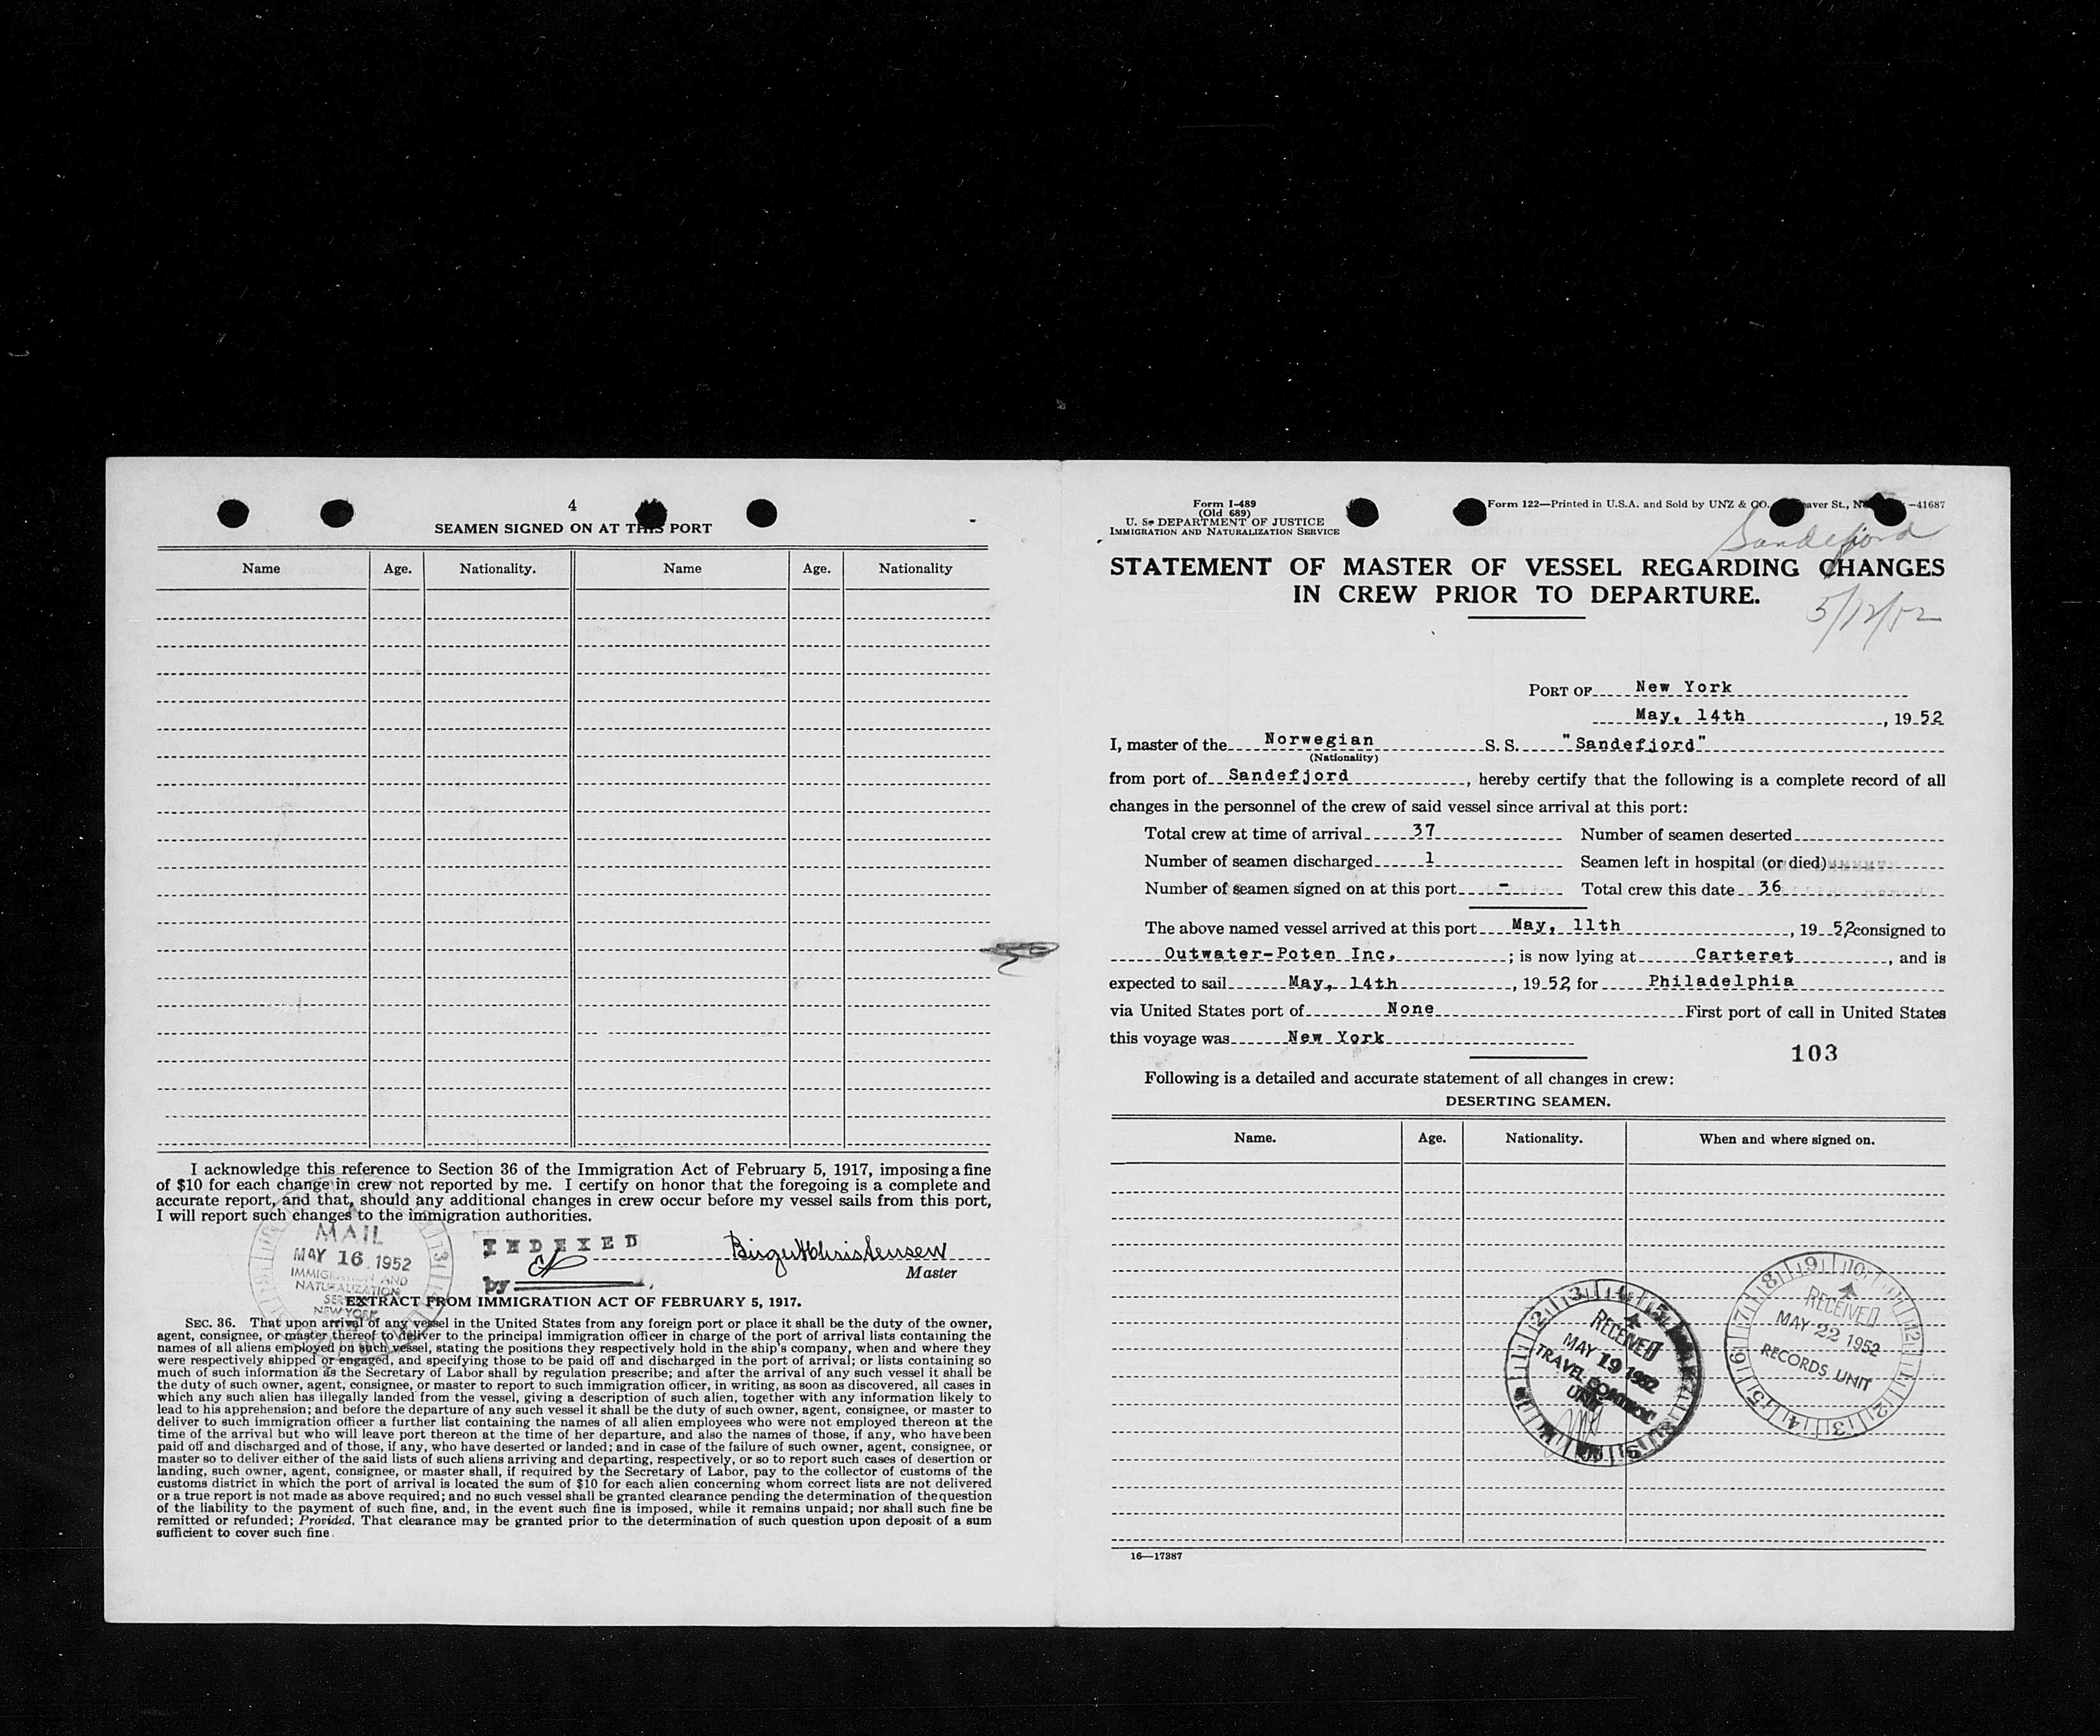 4
SEAMEN SIGNED ON AT THIS PORT
Name Age. Nationality. Name Age. Nationality
I acknowledge this reference to Section 36 of the Immigration Act of February 5, 1917, imposing a fine
of $10 for each change in crew not reported by me. I certify on honor that the foregoing is a complete and
accurate report, and that, should any additional changes in crew occur before my vessel sails from this port,
I will report such changes to the immigration authorities.
MAIL
MAY 16 1952
IMMIGRATION AND
NATURALIZATION
SERVICE
NEW YORK
INDEXED
by
Birger Christensen
Master
EXTRACT FROM IMMIGRATION ACT OF FEBRUARY 5, 1917.
SEC. 36. That upon arrival of any vessel in the United States from any foreign port or place it shall be the duty of the owner,
agent, consignee, or master thereof to deliver to the principal immigration officer in charge of the port of arrival lists containing the
names of all aliens employed on such vessel, stating the positions they respectively hold in the ship's company, when and where they
were respectively shipped or engaged, and specifying those to be paid off and discharged in the port of arrival; or lists containing so
much of such information as the Secretary of Labor shall by regulation prescribe; and after the arrival of any such vessel it shall be
the duty of such owner, agent, consignee, or master to report to such immigration officer, in writing, as soon as discovered, all cases in
which any such alien has illegally landed from the vessel, giving a description of such alien, together with any information likely to
lead to his apprehension; and before the departure of any such vessel it shall be the duty of such owner, agent, consignee, or master to
deliver to such immigration officer a further list containing the names of all alien employees who were not employed thereon at the
time of the arrival but who will leave port thereon at the time of her departure, and also the names of those, if any, who have been
paid off and discharged and of those, if any, who have deserted or landed; and in case of the failure of such owner, agent, consignee, or
master so to deliver either of the said lists of such aliens arriving and departing, respectively, or so to report such cases of desertion or
landing, such owner, agent, consignee, or master shall, if required by the Secretary of Labor, pay to the collector of customs of the
customs district in which the port of arrival is located the sum of $10 for each alien concerning whom correct lists are not delivered
or a true report is not made as above required; and no such vessel shall be granted clearance pending the determination of the question
of the liability to the payment of such fine, and, in the event such fine is imposed, while it remains unpaid; nor shall such fine be
remitted or refunded; Provided, That clearance may be granted prior to the determination of such question upon deposit of a sum
sufficient to cover such fine.
Form I-489
(Old 689)
U. S. DEPARTMENT OF JUSTICE
IMMIGRATION AND NATURALIZATION SERVICE
Form 122—Printed in U.S.A. and Sold by UNZ & CO. aver St., N —41687
Sandefjord
STATEMENT OF MASTER OF VESSEL REGARDING CHANGES
IN CREW PRIOR TO DEPARTURE.
5/12/52
PORT OF New York
May, 14th, 1952
I, master of the Norwegian S. S. "Sandefjord"
(Nationality)
from port of Sandefjord, hereby certify that the following is a complete record of all
changes in the personnel of the crew of said vessel since arrival at this port:
Total crew at time of arrival 37 Number of seamen deserted
Number of seamen discharged 1 Seamen left in hospital (or died)
Number of seamen signed on at this port - Total crew this date 36
The above named vessel arrived at this port May, 11th, 1952 consigned to
Outwater-Poten Inc.; is now lying at Carteret, and is
expected to sail May, 14th, 1952 for Philadelphia
via United States port of None First port of call in United States
this voyage was New York
103
Following is a detailed and accurate statement of all changes in crew:
DESERTING SEAMEN.
Name. Age. Nationality. When and where signed on.
RECEIVED
MAY 19 1952
TRAVEL CONTROL
UNIT
RECEIVED
MAY 22 1952
RECORDS UNIT
16—17387